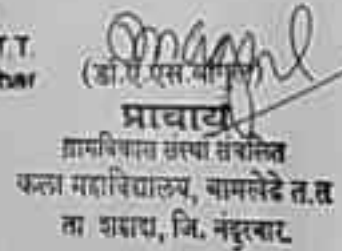 T.T.
(डॉ.ए.एस.
प्राचार्य
ग्रामविकास संस्था संचलित
कला महाविद्यालय, बामखेडे त.त
ता शहादा, जि. नंदुरबार.